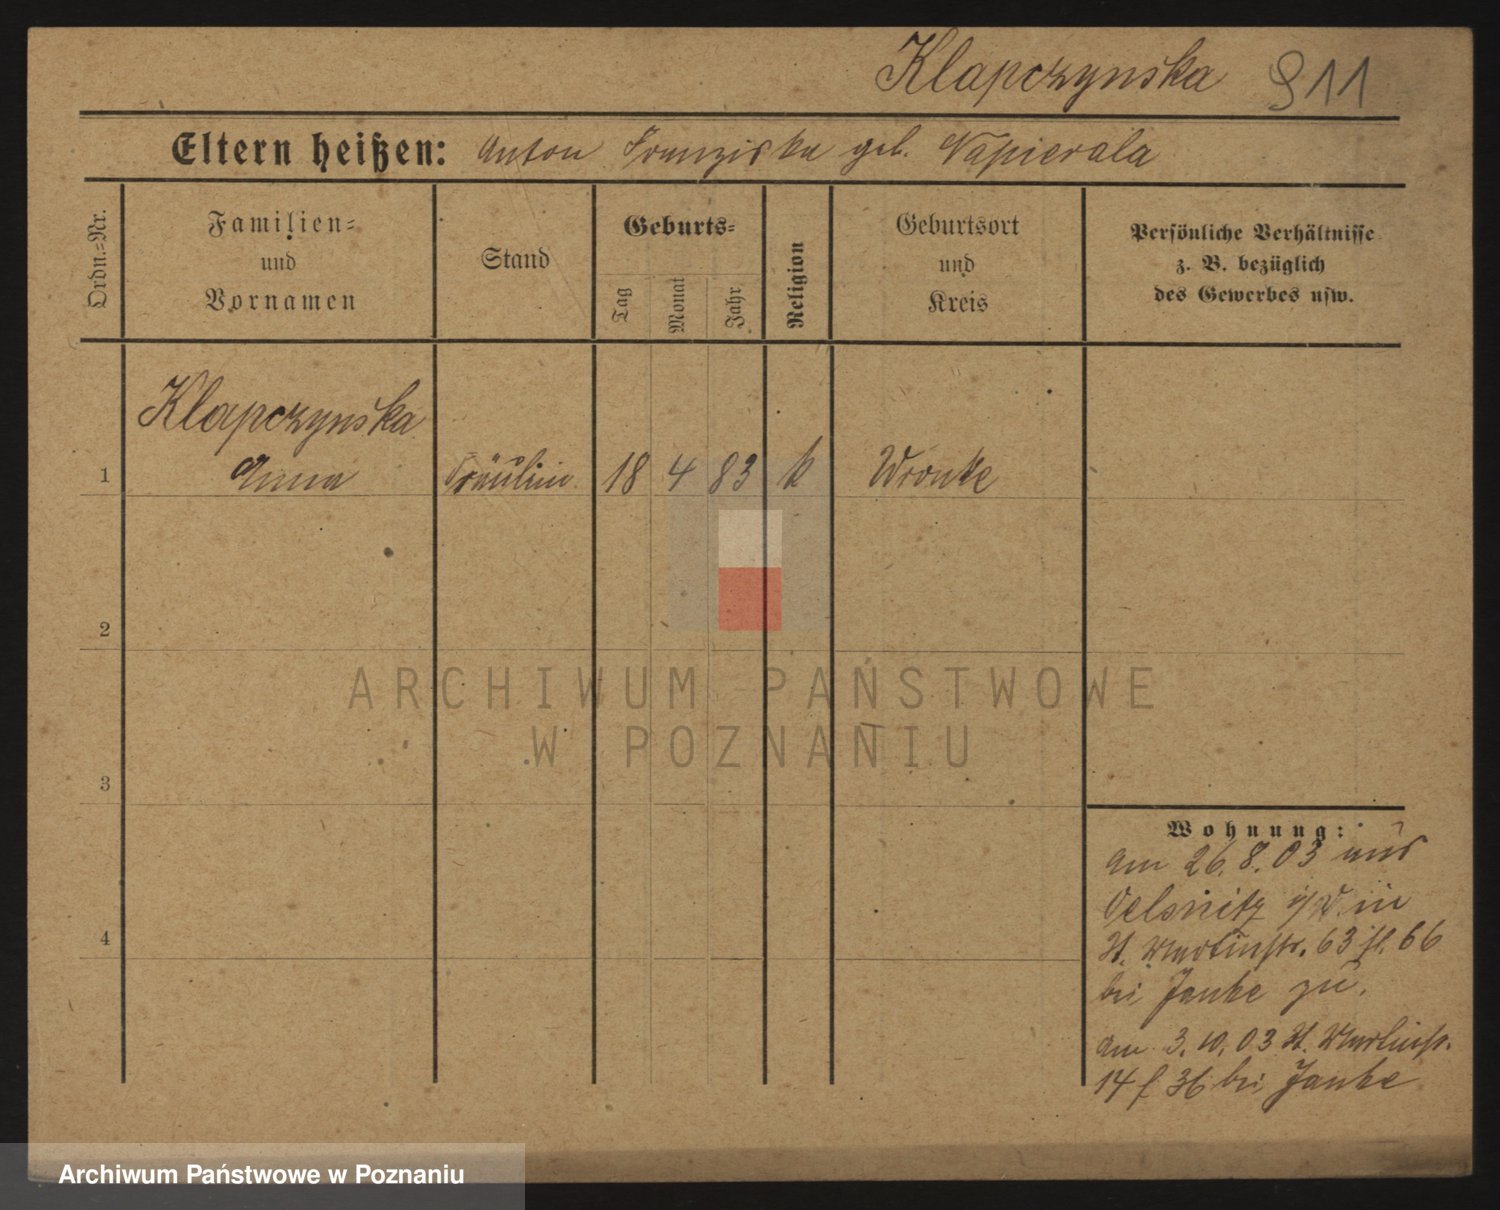 Klapczynska 911
Eltern heißen: Anton Franziska geb. Napierala
Ordn.=Nr.
Familien=
und
Vornamen
Stand
Geburts=
Tag
Monat
Jahr
Religion
Geburtsort
und
Kreis
Persönliche Verhältnisse
z. B. bezüglich
des Gewerbes usw.
Klapczynska
1 Anna Fräulein 18 4 83 k Wronke
2
3
4
ARCHIWUM PAŃSTWOWE
W POZNANIU
Wohnung:
am 26.8.03 aus
Oelsnitz i/V in
St. Martinstr. 63 66
bei Janke zu.
am 3.10.03 St. Martinstr.
14 36 bei Janke
Archiwum Państwowe w Poznaniu